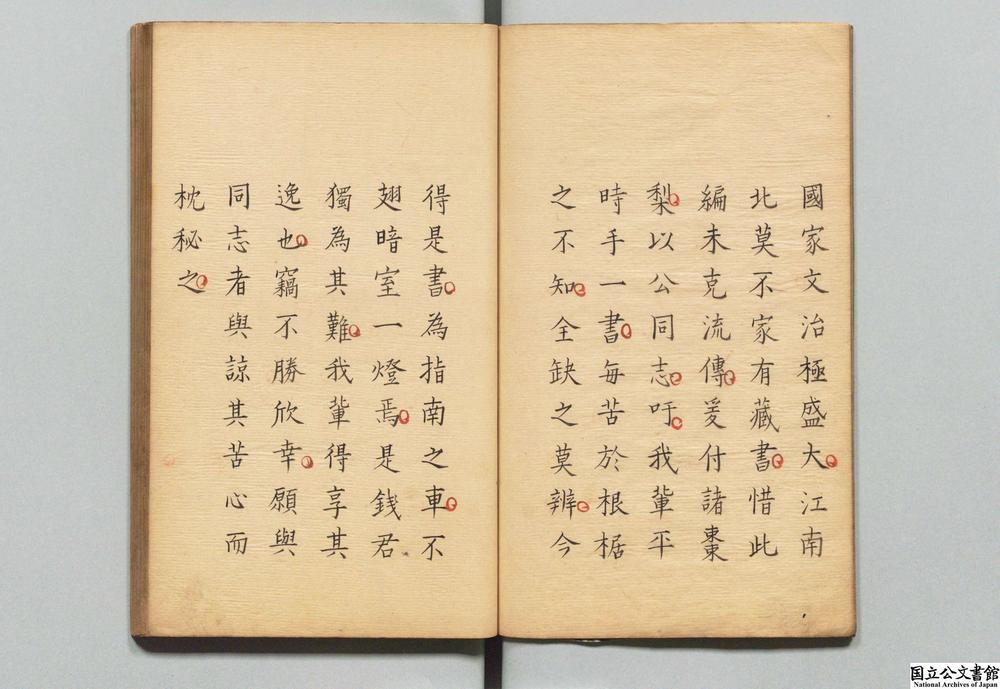 國家文治極盛大江南
北莫不家有藏書惜此
編未克流傳爰付諸棗
梨以公同志吁我輩平
時手一書每苦於根椐
之不知全缺之莫辨今
得是書為指南之車不
翅暗室一燈焉是錢君
獨為其難我輩得享其
逸也竊不勝欣幸願與
同志者與諒其苦心而
枕秘之
国立公文書館
National Archives of Japan